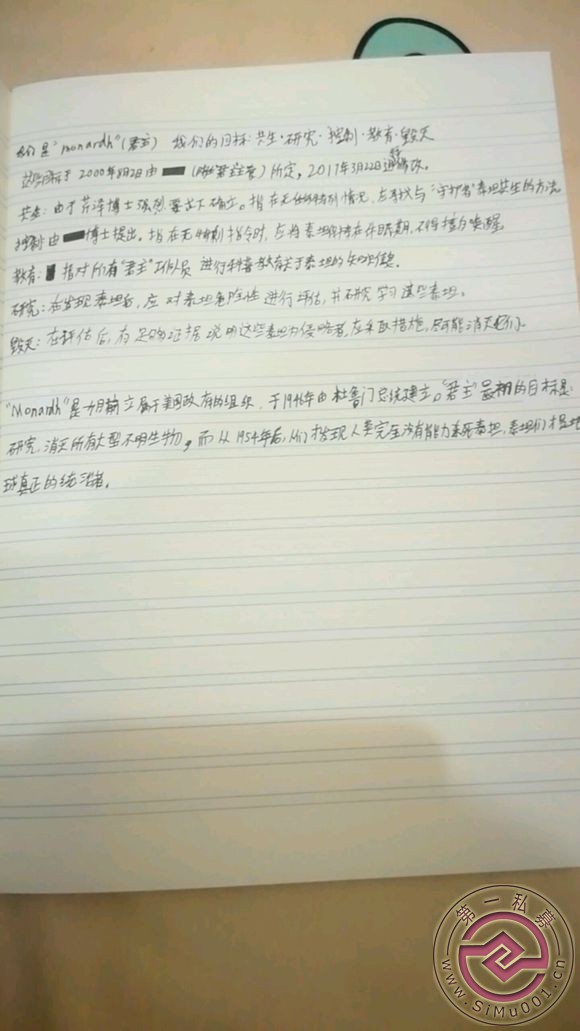 我们是"monardh"(君主) 我们的目标:共生·研究·控制·教育·毁灭
于2000年8月2日由 所定,2017年3月22日 修改。
共生:由于芹泽博士强烈要求下确立。指在无任何特别情况,应寻找与"守护者"泰坦共生的方法
控制:由 博士提出。指在无特别指令时,应将泰坦维持在休眠期,不得擅自唤醒。
教育: 指对所有"君主"工作人员 进行科普教育关于泰坦的知识
研究:在发现泰坦后,应对泰坦危险性进行评估,并研究学习这些泰坦。
毁灭:在评估后,有足够证据说明这些泰坦为侵略者,应采取措施,尽可能消灭它们。
"Monardh"是 属于美国政府的组织,于1946年由杜鲁门总统建立。"君主"最初的目标是:
研究,消灭所有大型不明生物,而从1954年后,人们才发现人类完全没有能力杀死泰坦,泰坦们才是地
球真正的统治者。
第一私募
www.SiMu001.cn